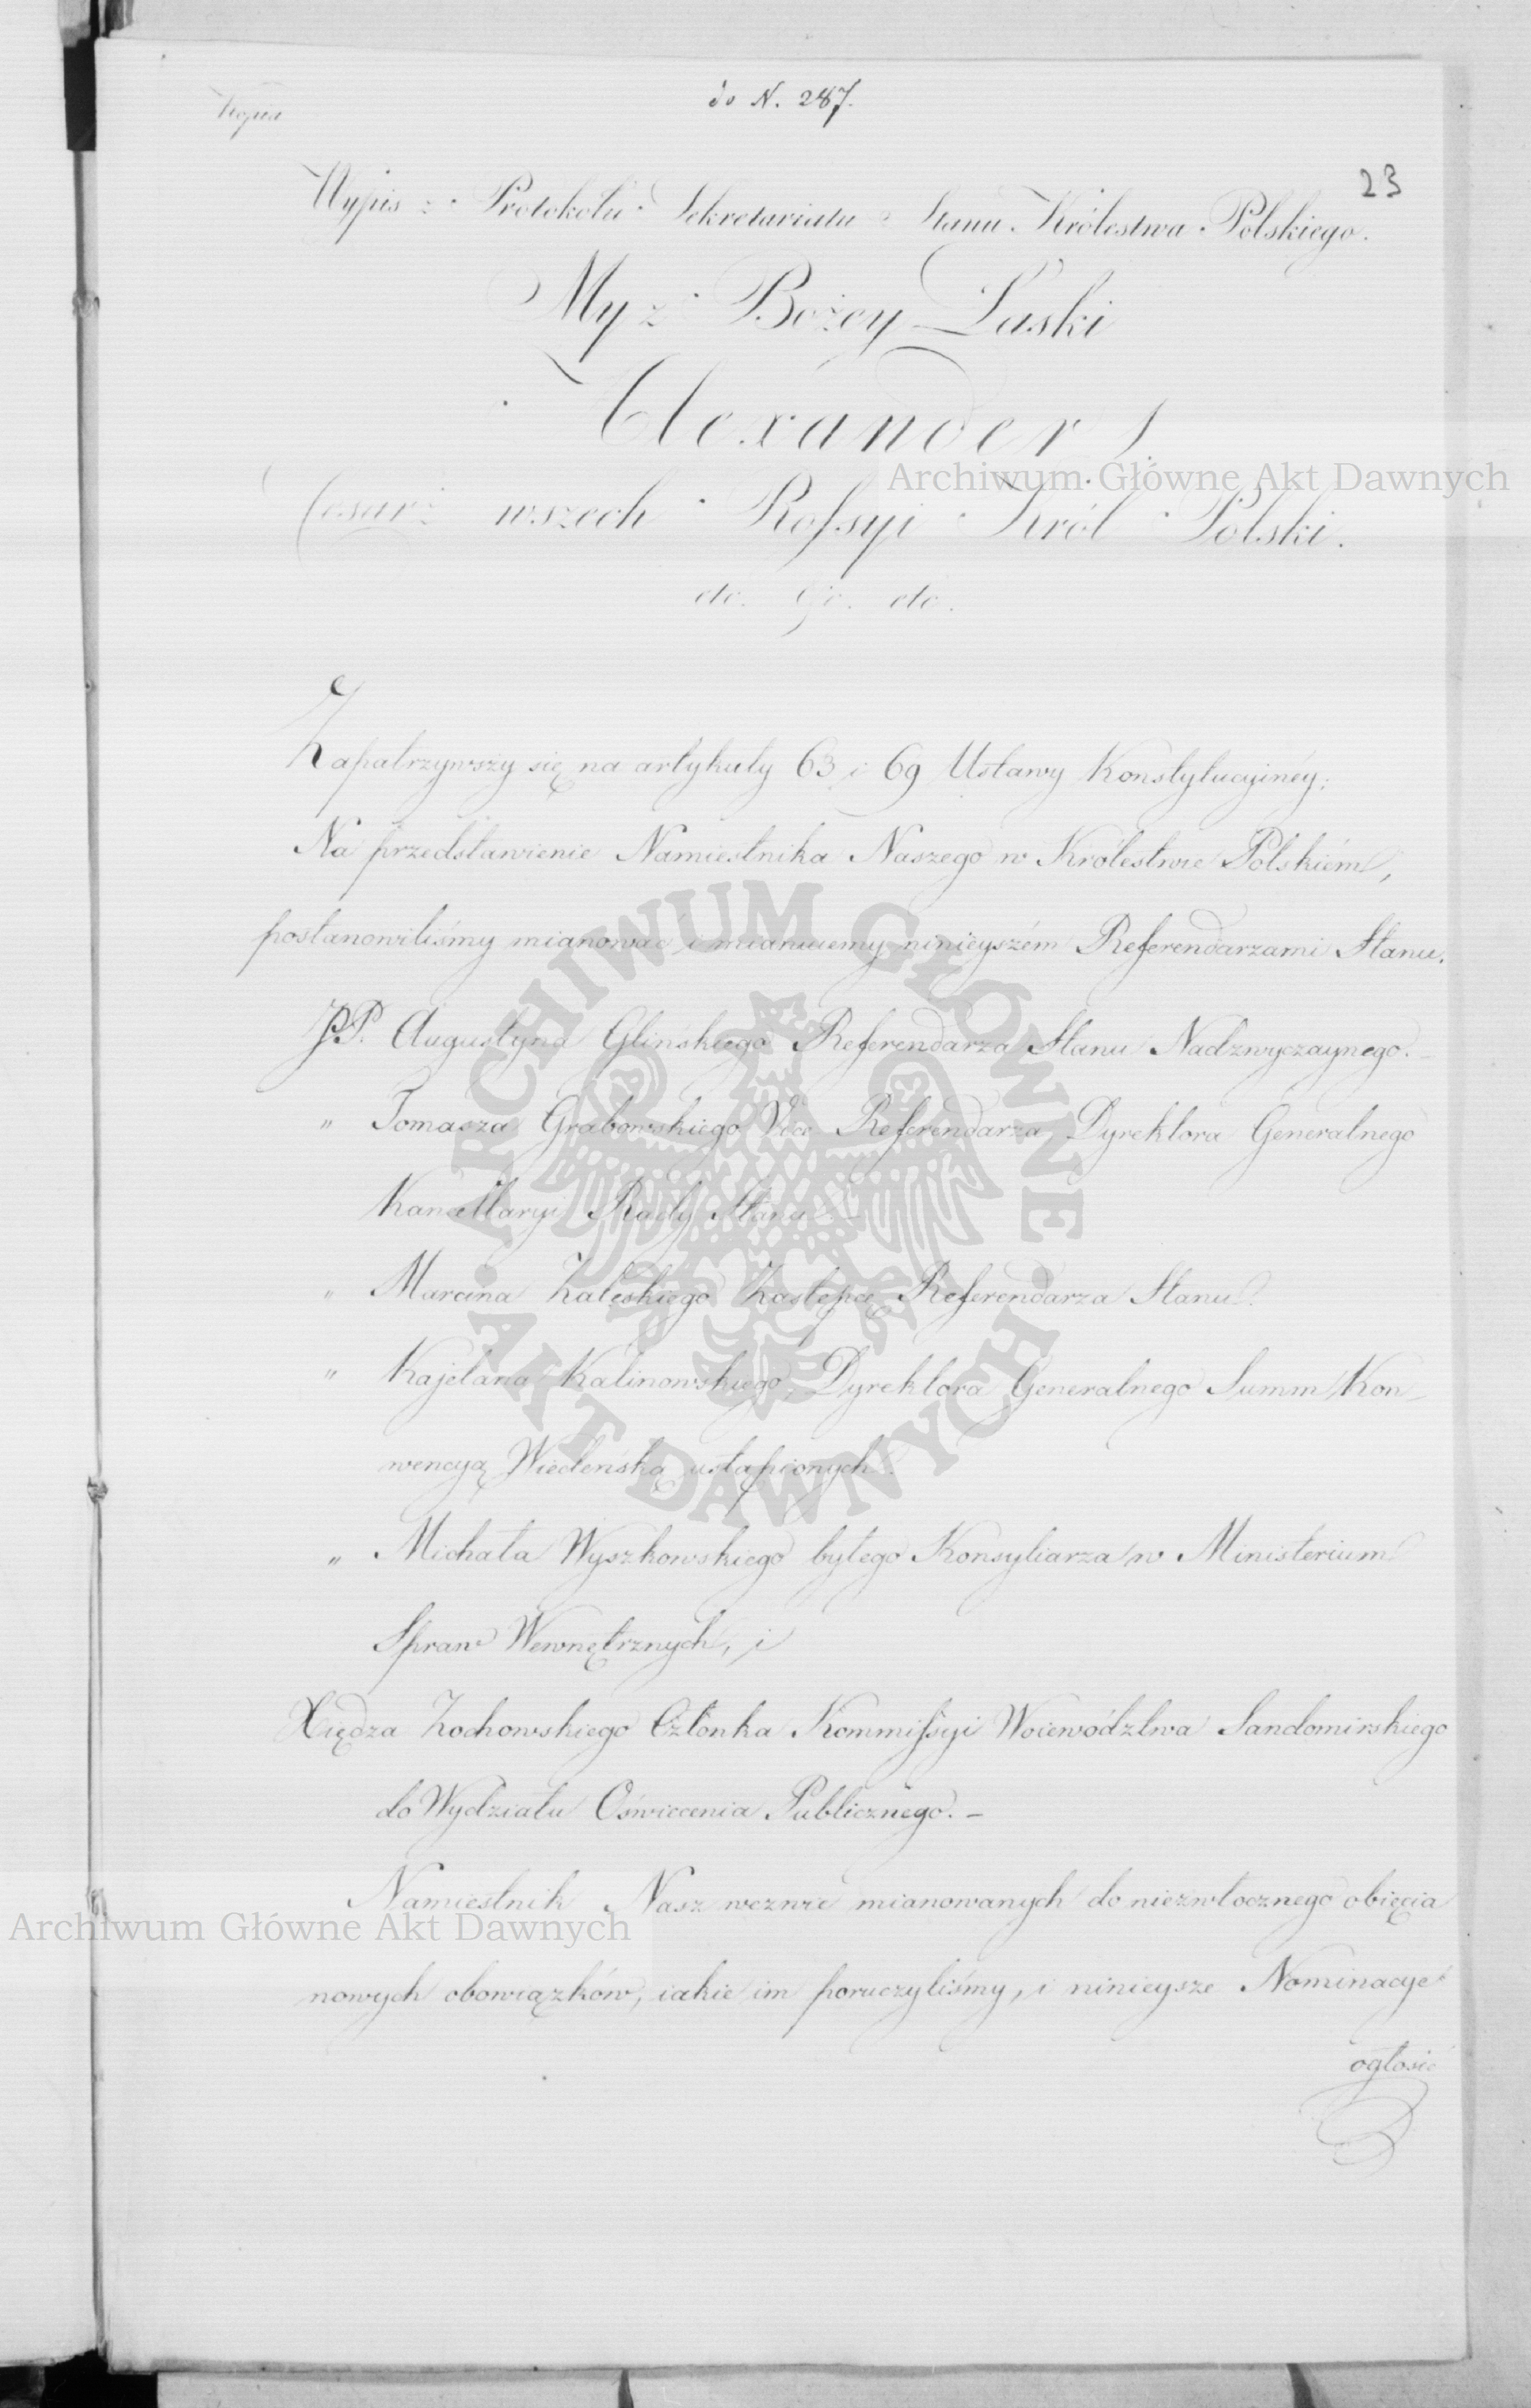 do N. 287.
Kopia
23
Wypis z Protokołu Sekretariatu Stanu Królestwa Polskiego.
My z Bożey Łaski
Alexander I.
Cesarz wszech Rossyi Król Polski.
etc. &c. etc.
Zapatrzywszy się na artykuły 63 i 69 Ustawy Konstytucyinéy;
Na przedstawienie Namiestnika Naszego w Królestwie Polskiém,
postanowiliśmy mianować i mianuiemy ninieyszém Referendarzami Stanu.
JP. Augustyna Glińskiego Referendarza Stanu Nadzwyczaynego. –
" Tomasza Grabowskiego Vice Referendarza, Dyrektora Generalnego
Kancellaryi Rady Stanu –
" Marcina Zaleskiego Zastępcę Referendarza Stanu.
" Kajetana Kalinowskiego, Dyrektora Generalnego Summ Kon-
wencyą Wiedeńską ustąpionych.
" Michała Wyszkowskiego byłego Konsyliarza w Ministerium
Spraw Wewnętrznych, i
Xiędza Zochowskiego Członka Kommissyi Woiewództwa Sandomirskiego
do Wydziału Oświecenia Publicznego. –
Namiestnik Nasz wezwie mianowanych do niezwłocznego obięcia
nowych obowiązków, iakie im poruczyliśmy, i ninieysze Nominacye
ogłosić
Archiwum Główne Akt Dawnych
ARCHIWUM GŁÓWNE AKT DAWNYCH
Archiwum Główne Akt Dawnych